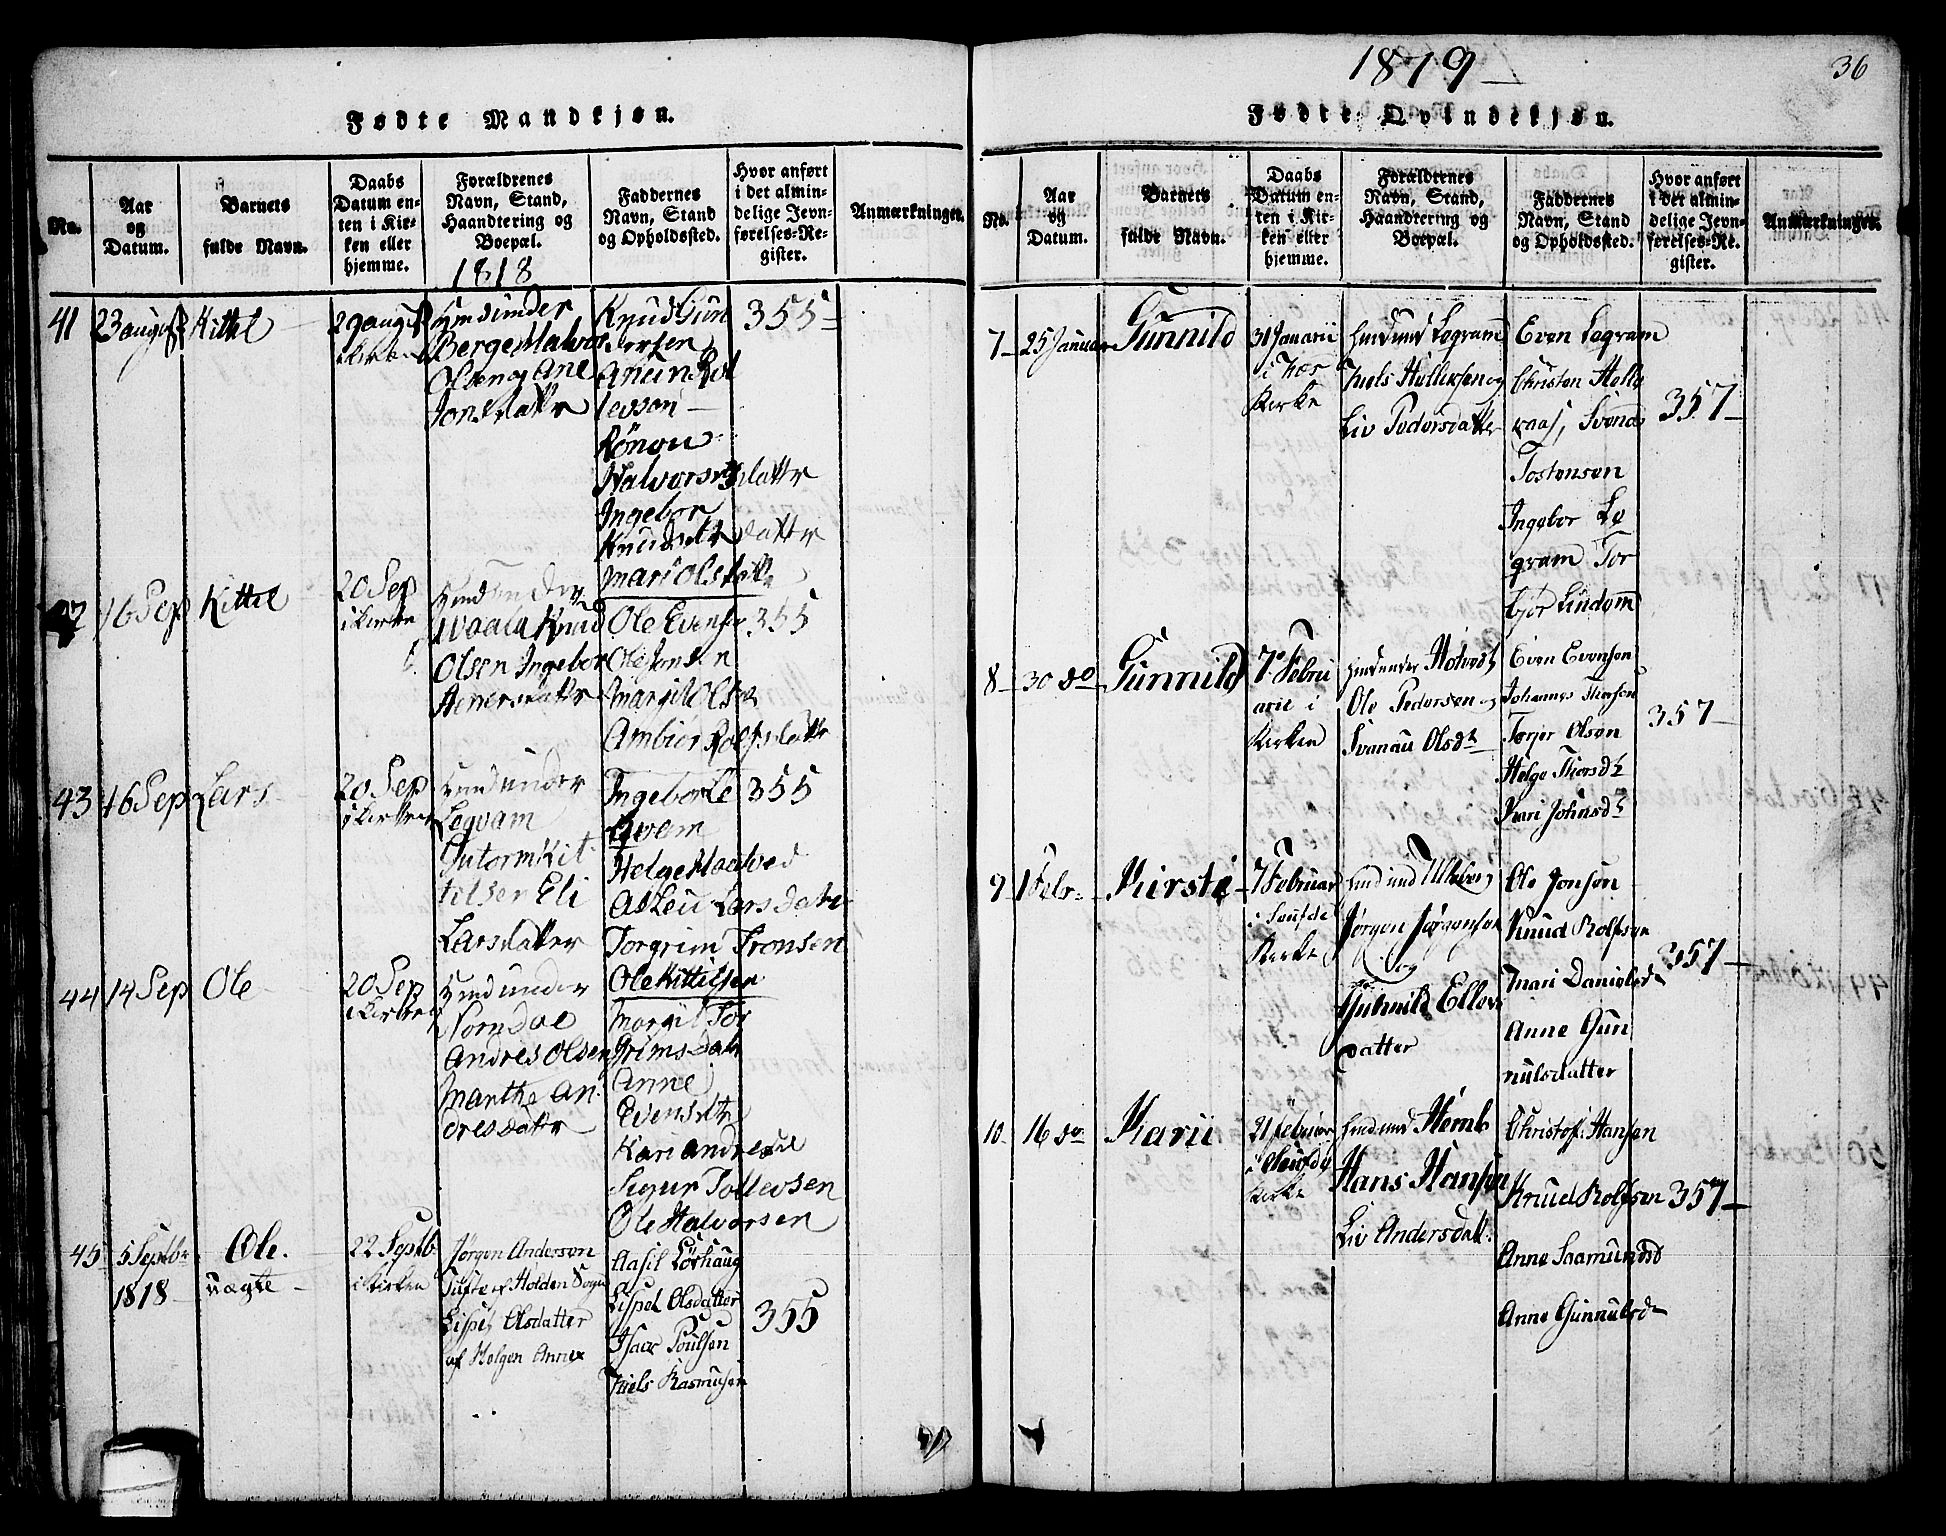 1819
36
Fødte Mandkjøn.
No.
Aar og Datum.
Barnets fulde Navn.
Daabs Datum enten i Kirken eller hjemme.
Forældrenes Navn, Stand, Haandtering og Boepæl.
Faddernes Navn, Stand og Opholdssted.
Hvor anført i det almindelige Jevnførelses-Register.
Anmærkninger.
1818
41
23 august
Kittel
29 august
i kirken
Huusmænder
Olsen og Ane
Jonsdattr
Knud Gun
dersen
Halvorsen dattr
Ingebor
Knudsdtr dattr
Mari Olsdattr
355
16 Sep
Kittel
20 Sep
i kirken
Knud
Olsen Ingebor
Ole Evensen
Ole Jonsen
Margit Olsen
Ambiør Rolfsdattr
355
43
16 Sep
Lars
20 Sep
i kirken
Hund under
Legvam
Gutorm Kit
tilsen Eli
Larsdatter
Ingebor Le
gvam
Helge Haatved
Aslou Larsdatr
Torgrim Tronsen
Ole Kittilsen
355
44
14 Sep
Ole
20 Sep
i kirken
Hund under
Andres Olsen
Marthe An
dresdattr
Margit Tor
grimsdatr
Anne
Evensdtr
Kari Andresd
Sigur Tollevsen
Ole Halvorsen
45
5 Septbr
1818
Ole.
uægte
22 Septb
i kirken
Jørgen Anderson
af Holden Sogn
Lispet Olsdatter
af Helgen Annex
Aasil Lørhaug
Lispet Olsdatter
Isac Poulsen
Niels Rasmusen
355
Fødte Qvindekjøn.
No.
Aar og Datum.
Barnets fulde Navn.
Daabs Datum enten i Kirken eller hjemme.
Forældrenes Navn, Stand, Haandtering og Boepæl.
Faddernes Navn, Stand og Opholdssted.
Hvor anført i det almindelige Jevnførelses-Register.
Anmærkninger.
7
25 Januar
Gunnild
31 Januarii
Kirke
Legram
Niels Helliksen og
Liv Pedersdatter
Even Legram
Christen Helle
raas, Svend
Tostensen
Ingebor Le
gram Tor
bjør Lindem
357
8
30 do
Gunnild
7 Febru
arii i
Kirken
Hund under Hotvedt
Ole Pedersen og
Svanau Olsdr
Even Evensen
Johannes Thorsen
Torjer Olsen
Helge Thorsdr
Kari Johnsdr
357
9
1 Febr
Kirste
7 Februar
i Saufde
Kirke
Jørgen Jørgensen
og
Gunnild Ellev
datter
Ole Jonson
Knud Rolfsen
Mari Danielsdr
Anne Gun
nulsdatter
357
10
16 do
Karii
21 Februar
i Saufde
Kirke
Hans Hansen
Liv Andersdatt.
Christof. Hansen
Knud Rolfsen
Anne Saamundsd
Anne Gunnulsdr
357